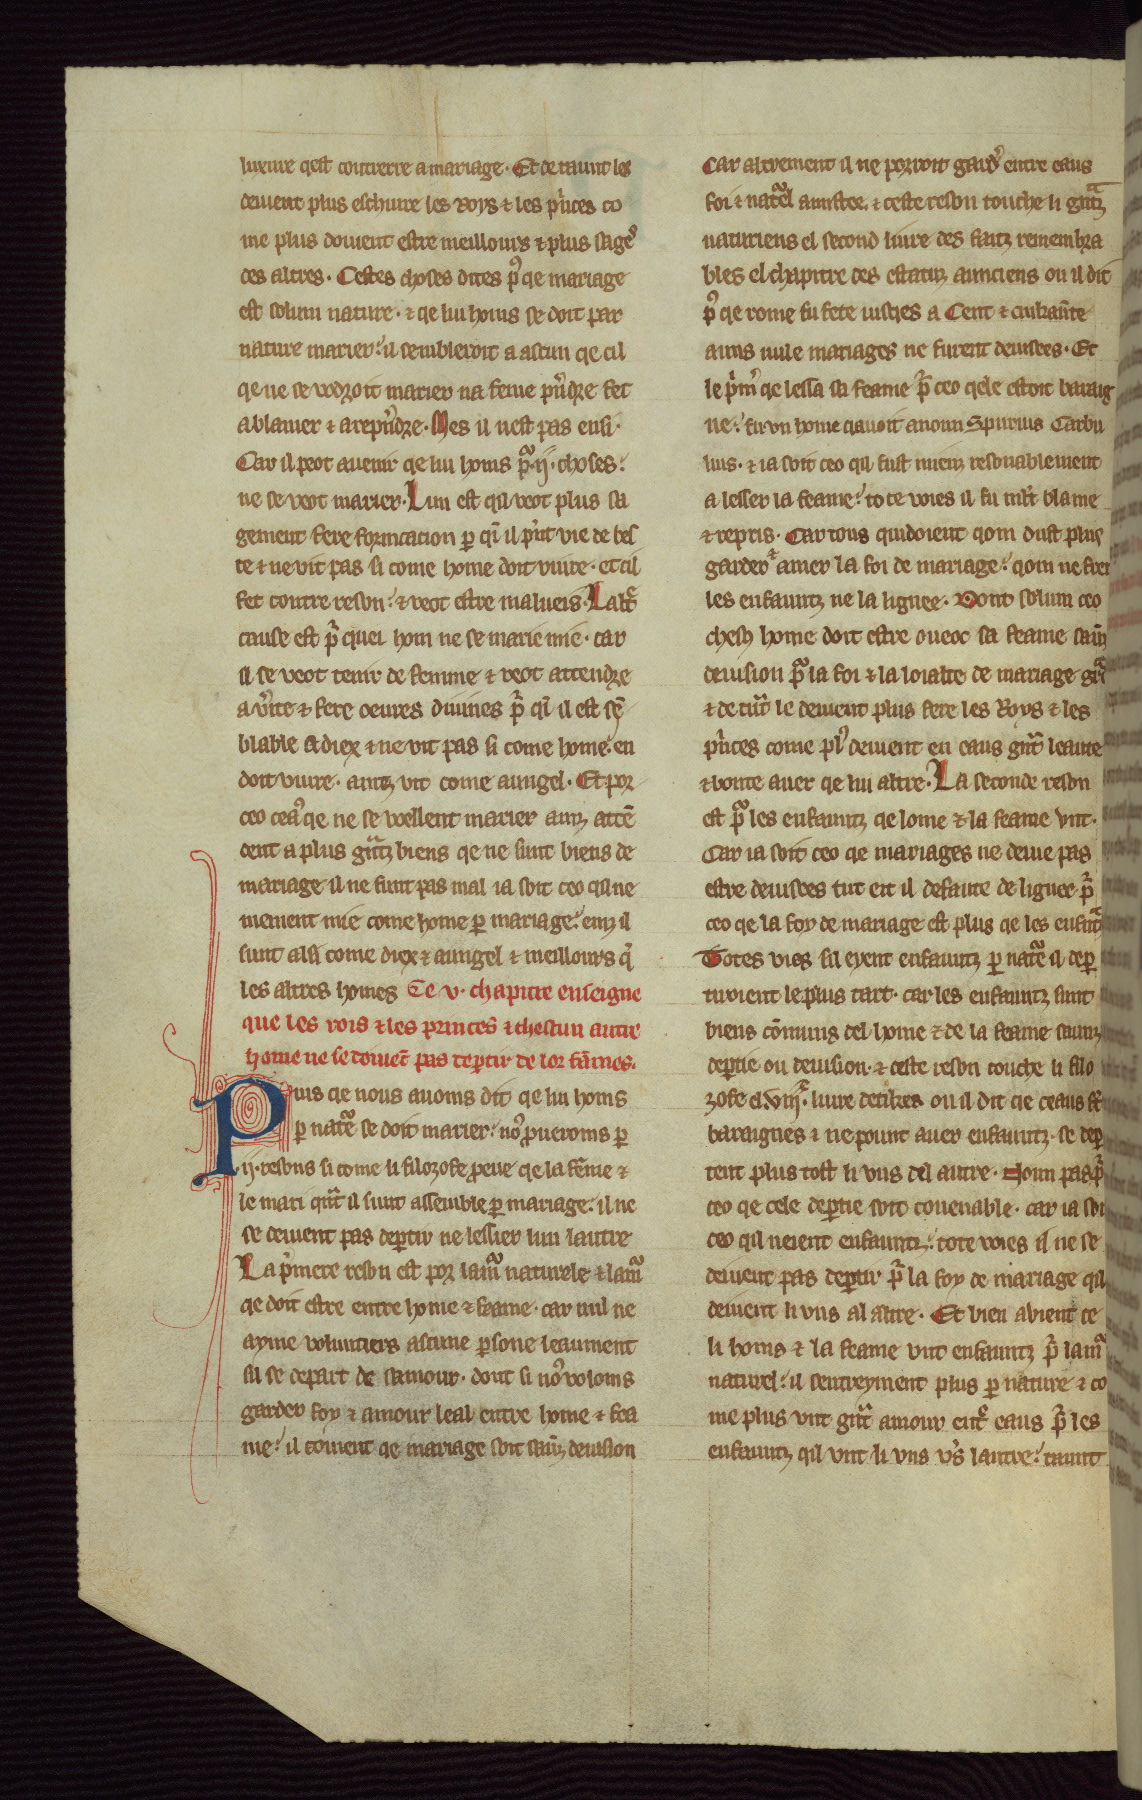 luxure qest contrerre a mariage. Et de taunt les
deiuent plus eschiure les Roys ⁊ les p'nces co
me plus doiuent estre meillours ⁊ plus sage9
des altres. Cestes choses dites p9 qe mariage
est solum nature. ⁊ qe lui homs se doit par
nature marier: il sembleroit a ascun qe cil
qe ne se vedroit marier na feme p'ndre fet
a blamer ⁊ a rep'ndre. Mes il nest pas ensi.
Car il peot auenir qe lui homs pa .ij. choses:
ne se veot marier. Lun est qil veot plus sa
gement fere fornicacion p qi il p'nt vie de bes
te ⁊ ne vit pas si come home doit viure. et cil
fet contre reson: ⁊ veot estre malueis. Laltre
cause est pa quei hom ne se marie mie. car
il se veot tenir de femme ⁊ veot attendre
a v'ite ⁊ fere oeures diuines pa qi il est sē
blable a diex ⁊ ne vit pas si come home en
doit viure. aintz vit come aungel. Et por
ceo ceaus qe ne se voellent marier aintz attē
dent a plus gautz biens qe ne sunt biens de
mariage il ne funt pas mal ia soit ceo qil ne
mement mie come home p mariage: eintz il
sunt alsi come diex ⁊ aungel ⁊ meillours q
les altres homes Ce .v. chapitre enseigne
que les rois ⁊ les princes ⁊ chescun autre
home ne se doiuet pas departir de lor fāmes.
Puis qe nous auoms dit qe lui homs
p nature se doit marier: no9 proueroms p
.ij. resons si come li filozofe proue qe la fēme ⁊
le mari quat il sunt assemble p mariage: il ne
se deiuent pas deptir ne lessier lun lautre
La p'mere reson est por lamo naturele ⁊ lamo
qe doit estre entre home ⁊ feame. car nul ne
ayme volunters ascune psone leaument
sil se depart de samour. dont si no9 voloms
garder foy ⁊ amour leal entre home ⁊ fea
me: il couient qe mariage soit saūz deuision
Car altrement il ne porroit gard' entre eaus
foi ⁊ natael amistee. ⁊ ceste reson touche li gautz
naturiens el second liure des faitz remembra
bles el chapitre des estatuz aunciens ou il dit
p9 qe rome fu fete iusqes a Cent ⁊ cinkaūte
auns nule mariages ne furent deuisees. Et
le p'm' qe lessa sa feame pa ceo qele estoit baraig
ne: fu vn home qauoit a noun Spurius Carbu
lius. ⁊ ia soit ceo qil fust mieuz resonablement
a lesser la feame: tote voies il fu mlt blame
⁊ repris. Car tous quidoient qom dust plus
garder ⁊ amer la foi de mariage: qom ne frei
les enfauntz ne la lignee. Dont solum ceo
chesū home doit estre oueoc sa feame saūz
deuision pa la foi ⁊ la loialte de mariage gar
⁊ de taunt le deiuent plus fere les Roys ⁊ les
p'nces come pl9 deiuent en eaus gaut leaute
⁊ bonte auer qe lui altre. La seconde reson
est pa les enfauntz qe lome ⁊ la feame vnt.
Car ia soit ceo qe mariages ne deiue pas
estre deuisees tut eit il defaute de lignee pa
ceo qe la foy de mariage est plus qe les enfātz
Totes vies sil eyent enfauntz p nature il dep
tiroient le plus tart. car les enfauntz sunt
biens cōmuns del home ⁊ de la feame saunz
deptie ou deuision. ⁊ ceste reson touche li filo
zofe el .viij. liure detikes ou il dit qe ceaus sūt
baraignes ⁊ ne pount auer enfauntz. se dep
tent plus tost li vns del autre. Noun pas pa
ceo qe cele deptie soit couenable. car ia soi
ceo qil neient enfauntz: tote voies il ne se
deiuent pas deptir pa la foy de mariage qil
deiuent li vns al altre. Et bien abient ce
li homs ⁊ la feame vnt enfauntz pa lamo
naturel: il sentreyment plus p nature ⁊ co
me plus vnt gaut amour ent' eaus pa les
enfauntz qil vnt li vns v's lautre: taunt